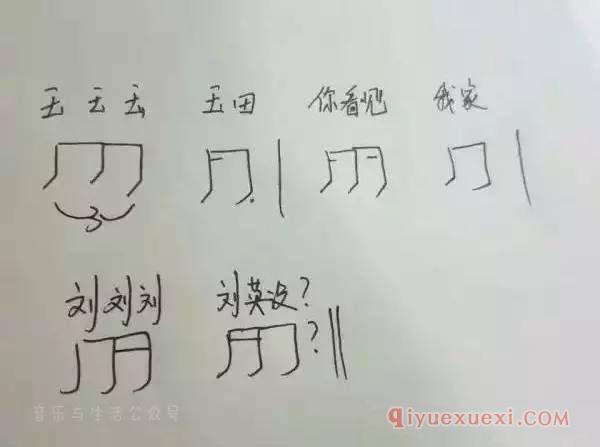 玉 玉 玉 玉田 你看见 我家
3
刘 刘 刘 刘英没?
?
音乐与生活公众号
qiyuexuexi.com